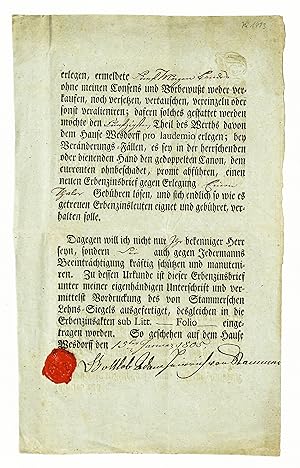 erlegen, ermeldete
ohne meinen Consens und Vorbewußt weder ver-
kaufen, noch versetzen, vertauschen, vereinzeln oder
sonst veralieniren; dafern solches gestattet werden
möchte den Funfzigsten Theil des Werths davon
dem Hause Wesdorff pro laudemio erlegen; bey
Veränderungs-Fällen, es sey in der herrschenden
oder dienenden Hand den gedoppelten Canon, dem
currenten ohnbeschadet, promt abführen, einen
neuen Erbenzinsbrief gegen Erlegung Eines
Thaler Gebühren lösen, und sich endlich so wie es
getreuen Erbenzinsleuten eignet und gebühret, ver-
halten solle.
Dagegen will ich nicht nur Ihr bekenniger Herr
seyn, sondern Sie auch gegen Jedermanns
Beeinträchtigung kräftig schützen und manuteni-
ren. Zu dessen Urkunde ist dieser Erbenzinsbrief
unter meiner eigenhändigen Unterschrift und ver-
mittelst Vordruckung des von Stammerschen
Lehns-Siegels ausgefertiget, desgleichen in die
Erbenzinsakten sub Litt. — Folio — einge-
tragen worden. So geschehen auf dem Hause
Wesdorff den 13ten Januar 1805.
Gottlob Adam Heinrich von Stammer